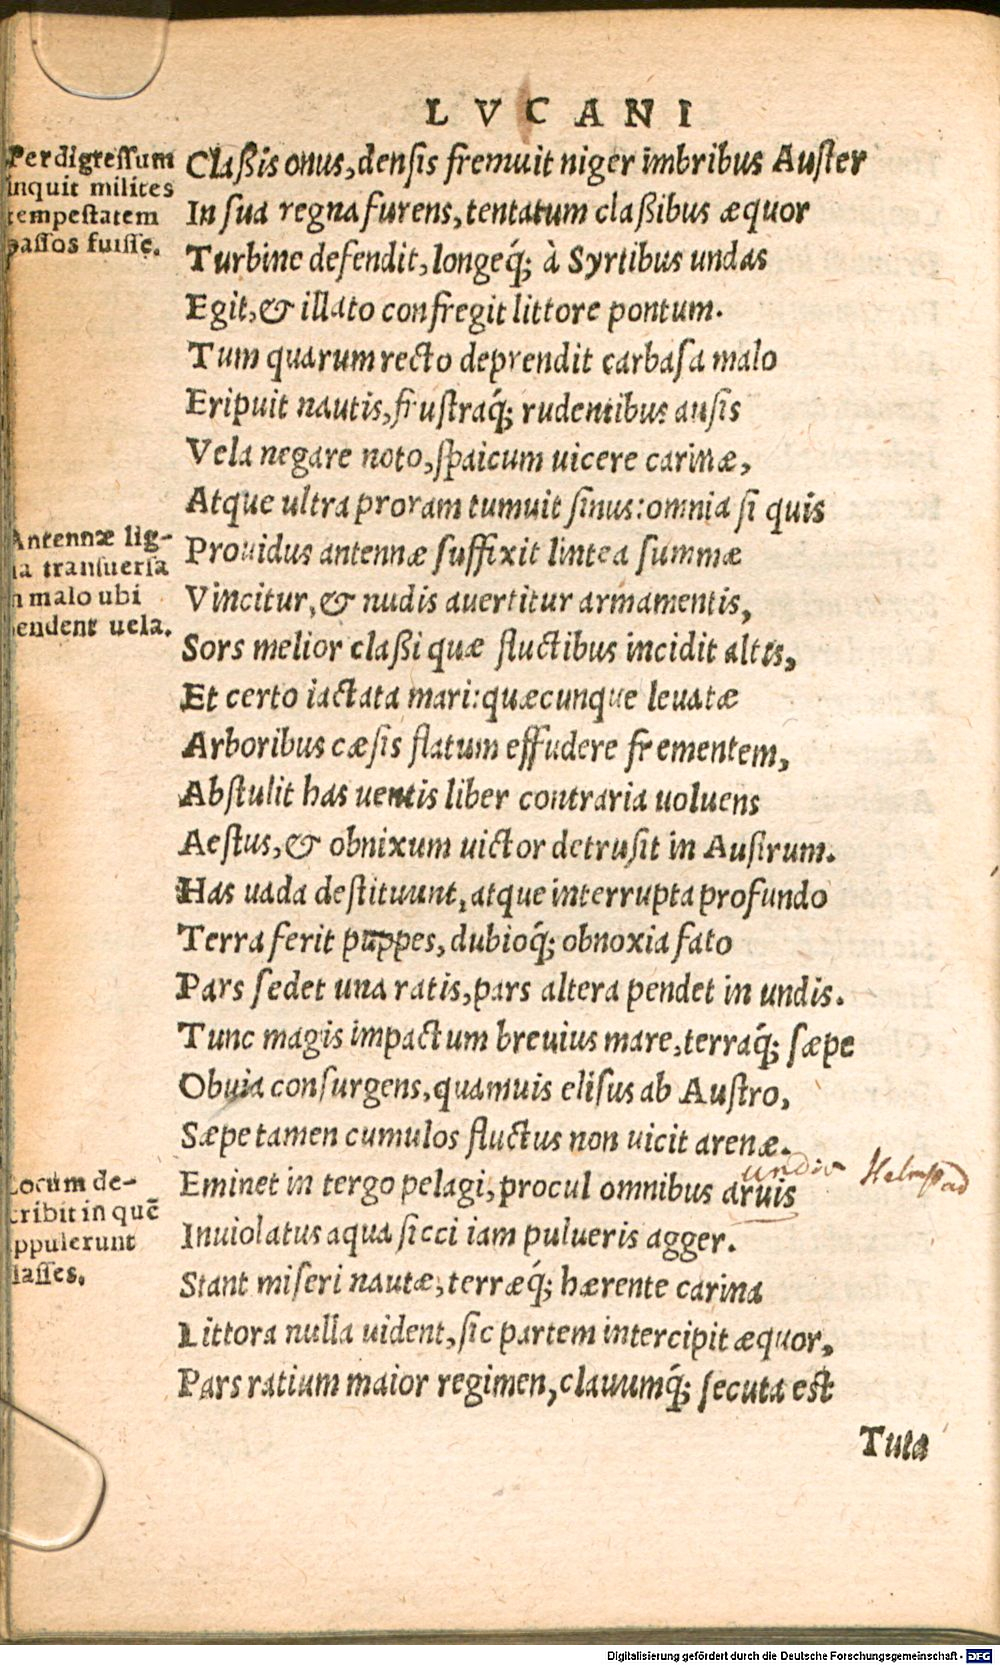 LVCANI
Perdigressum
inquit milites
tempestatem
passos fuisse.
Claßis onus, densis fremuit niger imbribus Auster
In sua regna furens, tentatum claßibus æquor
Turbine defendit, longeq́; à Syrtibus undas
Egit, & illato confregit littore pontum.
Tum quarum recto deprendit carbasa malo
Eripuit nautis, frustraq́; rudentibus ausis
Vela negare noto, spaicum uicere carinæ,
Atque ultra proram tumuit sinus: omnia si quis
Antennæ lig-
na transuersa
in malo ubi
pendent uela.
Prouidus antennæ suffixit lintea summæ
Vincitur, & nudis auertitur armamentis,
Sors melior claßi quæ fluctibus incidit altis,
Et certo iactata mari: quæcunque leuatæ
Arboribus cæsis flatum effudere frementem,
Abstulit has uentis liber contraria uoluens
Aestus, & obnixum uictor detrusit in Austrum.
Has uada destituunt, atque interrupta profundo
Terra ferit puppes, dubioq́; obnoxia fato
Pars sedet una ratis, pars altera pendet in undis.
Tunc magis impactum breuius mare, terraq́; sæpe
Obuia consurgens, quamuis elisus ab Austro,
Sæpe tamen cumulos fluctus non uicit arenæ.
Locum de-
scribit in quē
appulerunt
classes.
undis
Eminet in tergo pelagi, procul omnibus aruis
Inuiolatus aqua sicci iam pulueris agger.
Stant miseri nautæ, terræq́; hærente carina
Littora nulla uident, sic partem intercipit æquor,
Pars ratium maior regimen, clauumq́; secuta est
Tuta
Digitalisierung gefördert durch die Deutsche Forschungsgemeinschaft - DFG